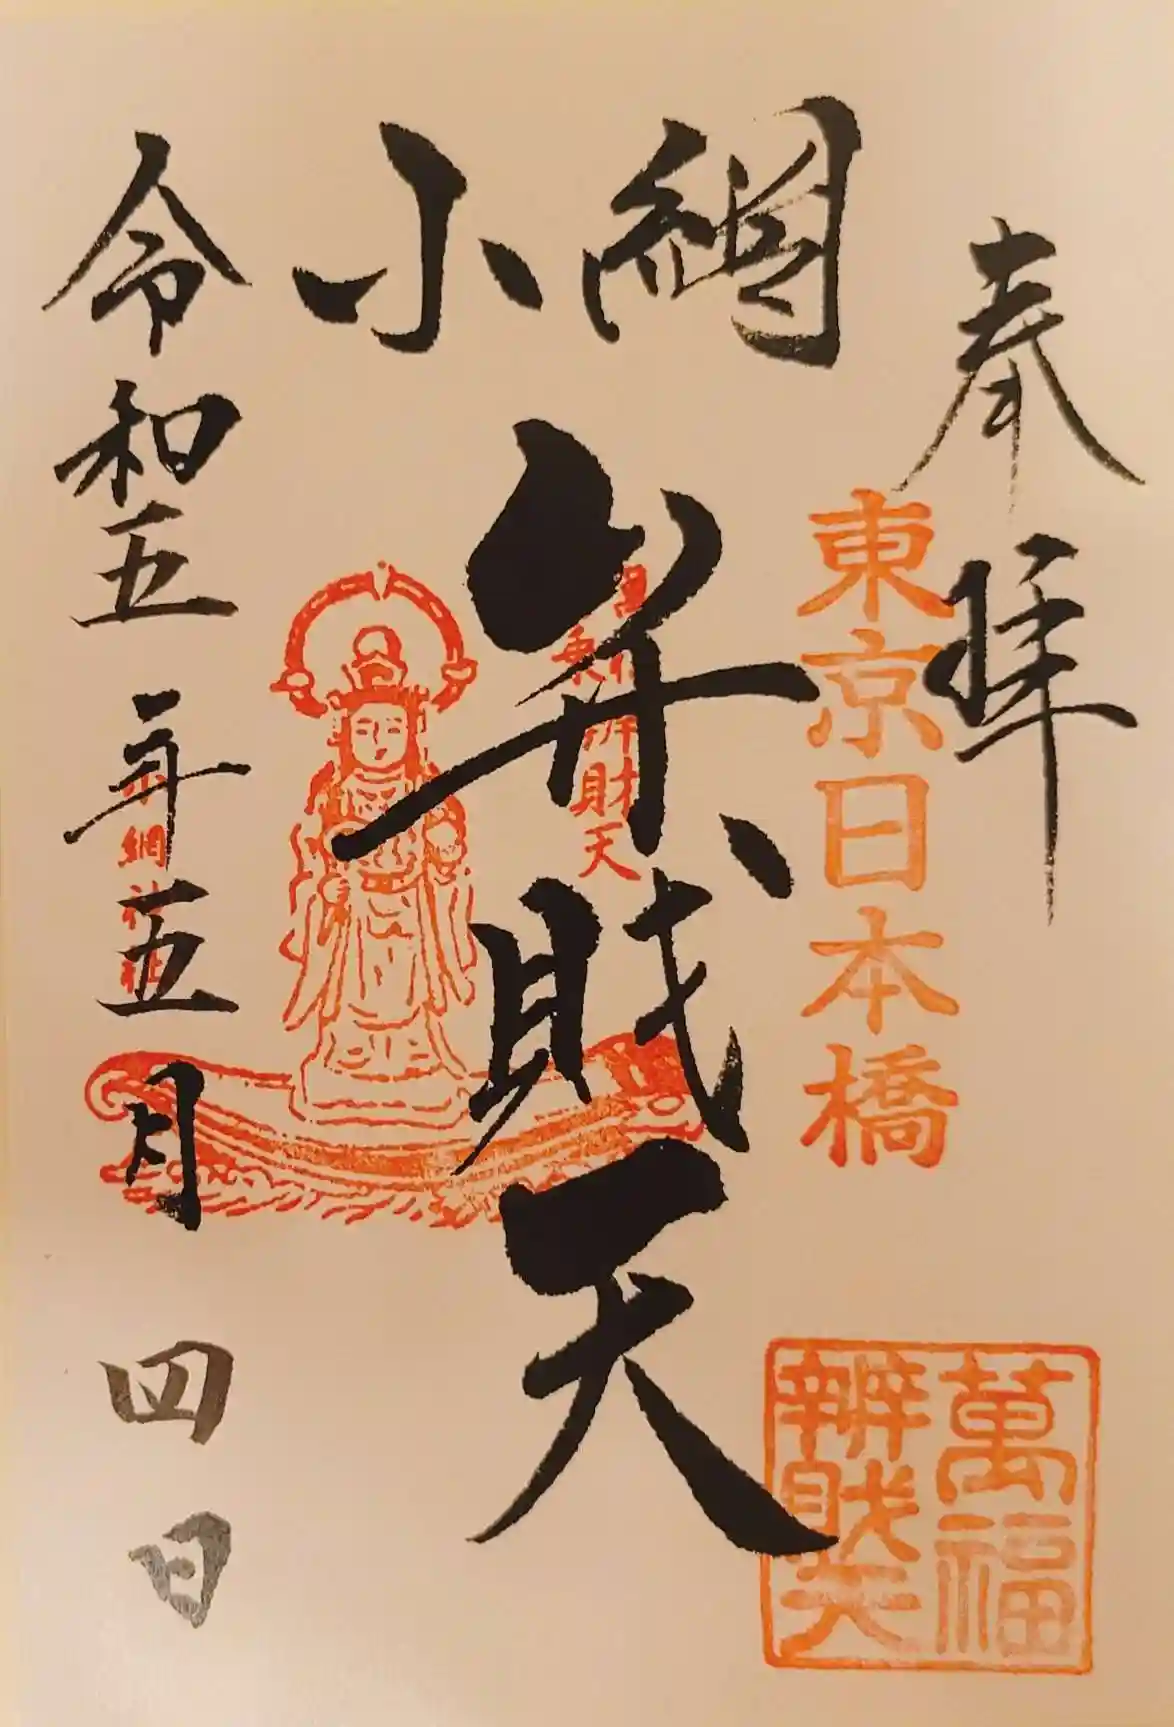 奉拝
東京日本橋
小網
弁財天
萬福
辨財天
辨財天
小網神社
令和五年五月四日